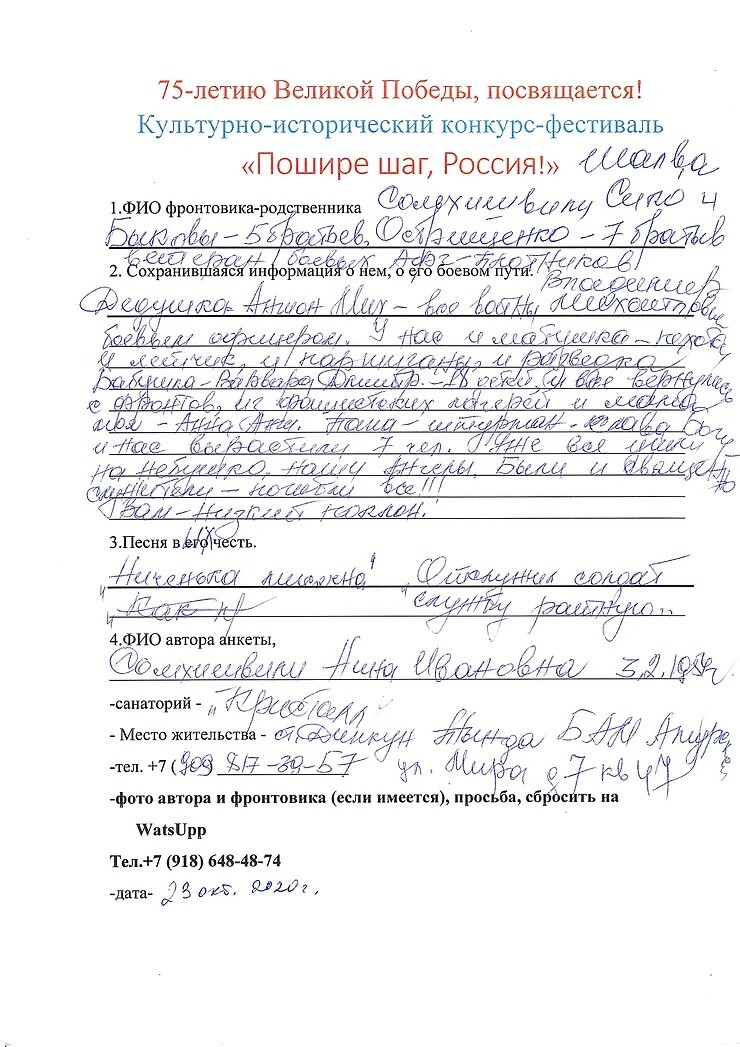 75-летию Великой Победы, посвящается!
Культурно-исторический конкурс-фестиваль
«Пошире шаг, Россия!» Шалва
1.ФИО фронтовика-родственника Сомхишвили Сико и
Быковы - 5 братьев, Остриценко - 7 братьев
ветеран боевых
2. Сохранившаяся информация о нем, о его боевом пути.
Дедушка Антон Мих - всю войну
боевым офицером. У нас и матушка - пехота
и лётчик, и партизаны, и разведка
Бабушка - Варвара Дмитр. - детей, и все вернулись
с фронтов, из фашистских лагерей и мама
моя - Анна Ант. Папа - штурман. слава Богу
и нас вырастили 7 чел. Уже все ушли
на небушко, наши Ангелы. Были и священно
служители - погибли все!!!
Вам - низкий поклон!
3.Песня в его их честь.
"Ниченька "Отслужил солдат
"Как службу ратную"
4.ФИО автора анкеты,
Сомхишвили Нина Ивановна
-санаторий - "Кристалл"
- Место жительства - Тында БАМ
-тел. +7 (909 817-39-57 ул. Мира д 7 кв 47
-фото автора и фронтовика (если имеется), просьба, сбросить на
WatsUpp
Тел.+7 (918) 648-48-74
-дата- 23 окт. 2020г.